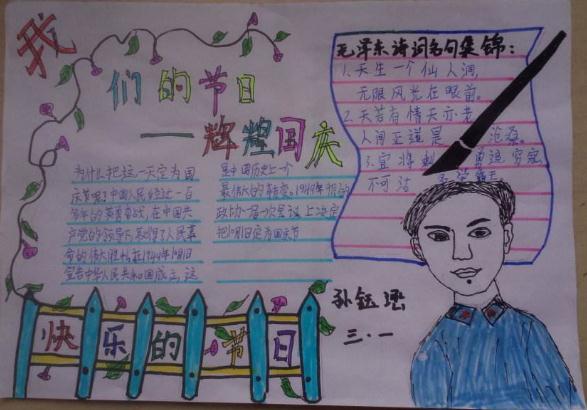 我
们的节日
——辉煌国庆
为什么把这一天定为国
庆节呢?中国人民经过一百
多年的英勇奋战,在中国共
产党的领导下,取得了人民革
命的伟大胜利,在1949年10月1日
宣告中华人民共和国成立,这
是中国历史上一个
最伟大的转变。1949年
政协一届一次会议上决定
把10月1日定为国庆节
毛泽东诗词名句集锦:
1.天生一个仙人洞,
无限风光在险峰。
2.天若有情天亦老
人间正道是 沧桑。
3.宜将剩 勇追穷寇,
不可沽 名学霸王
孙
三·一
快乐的节日